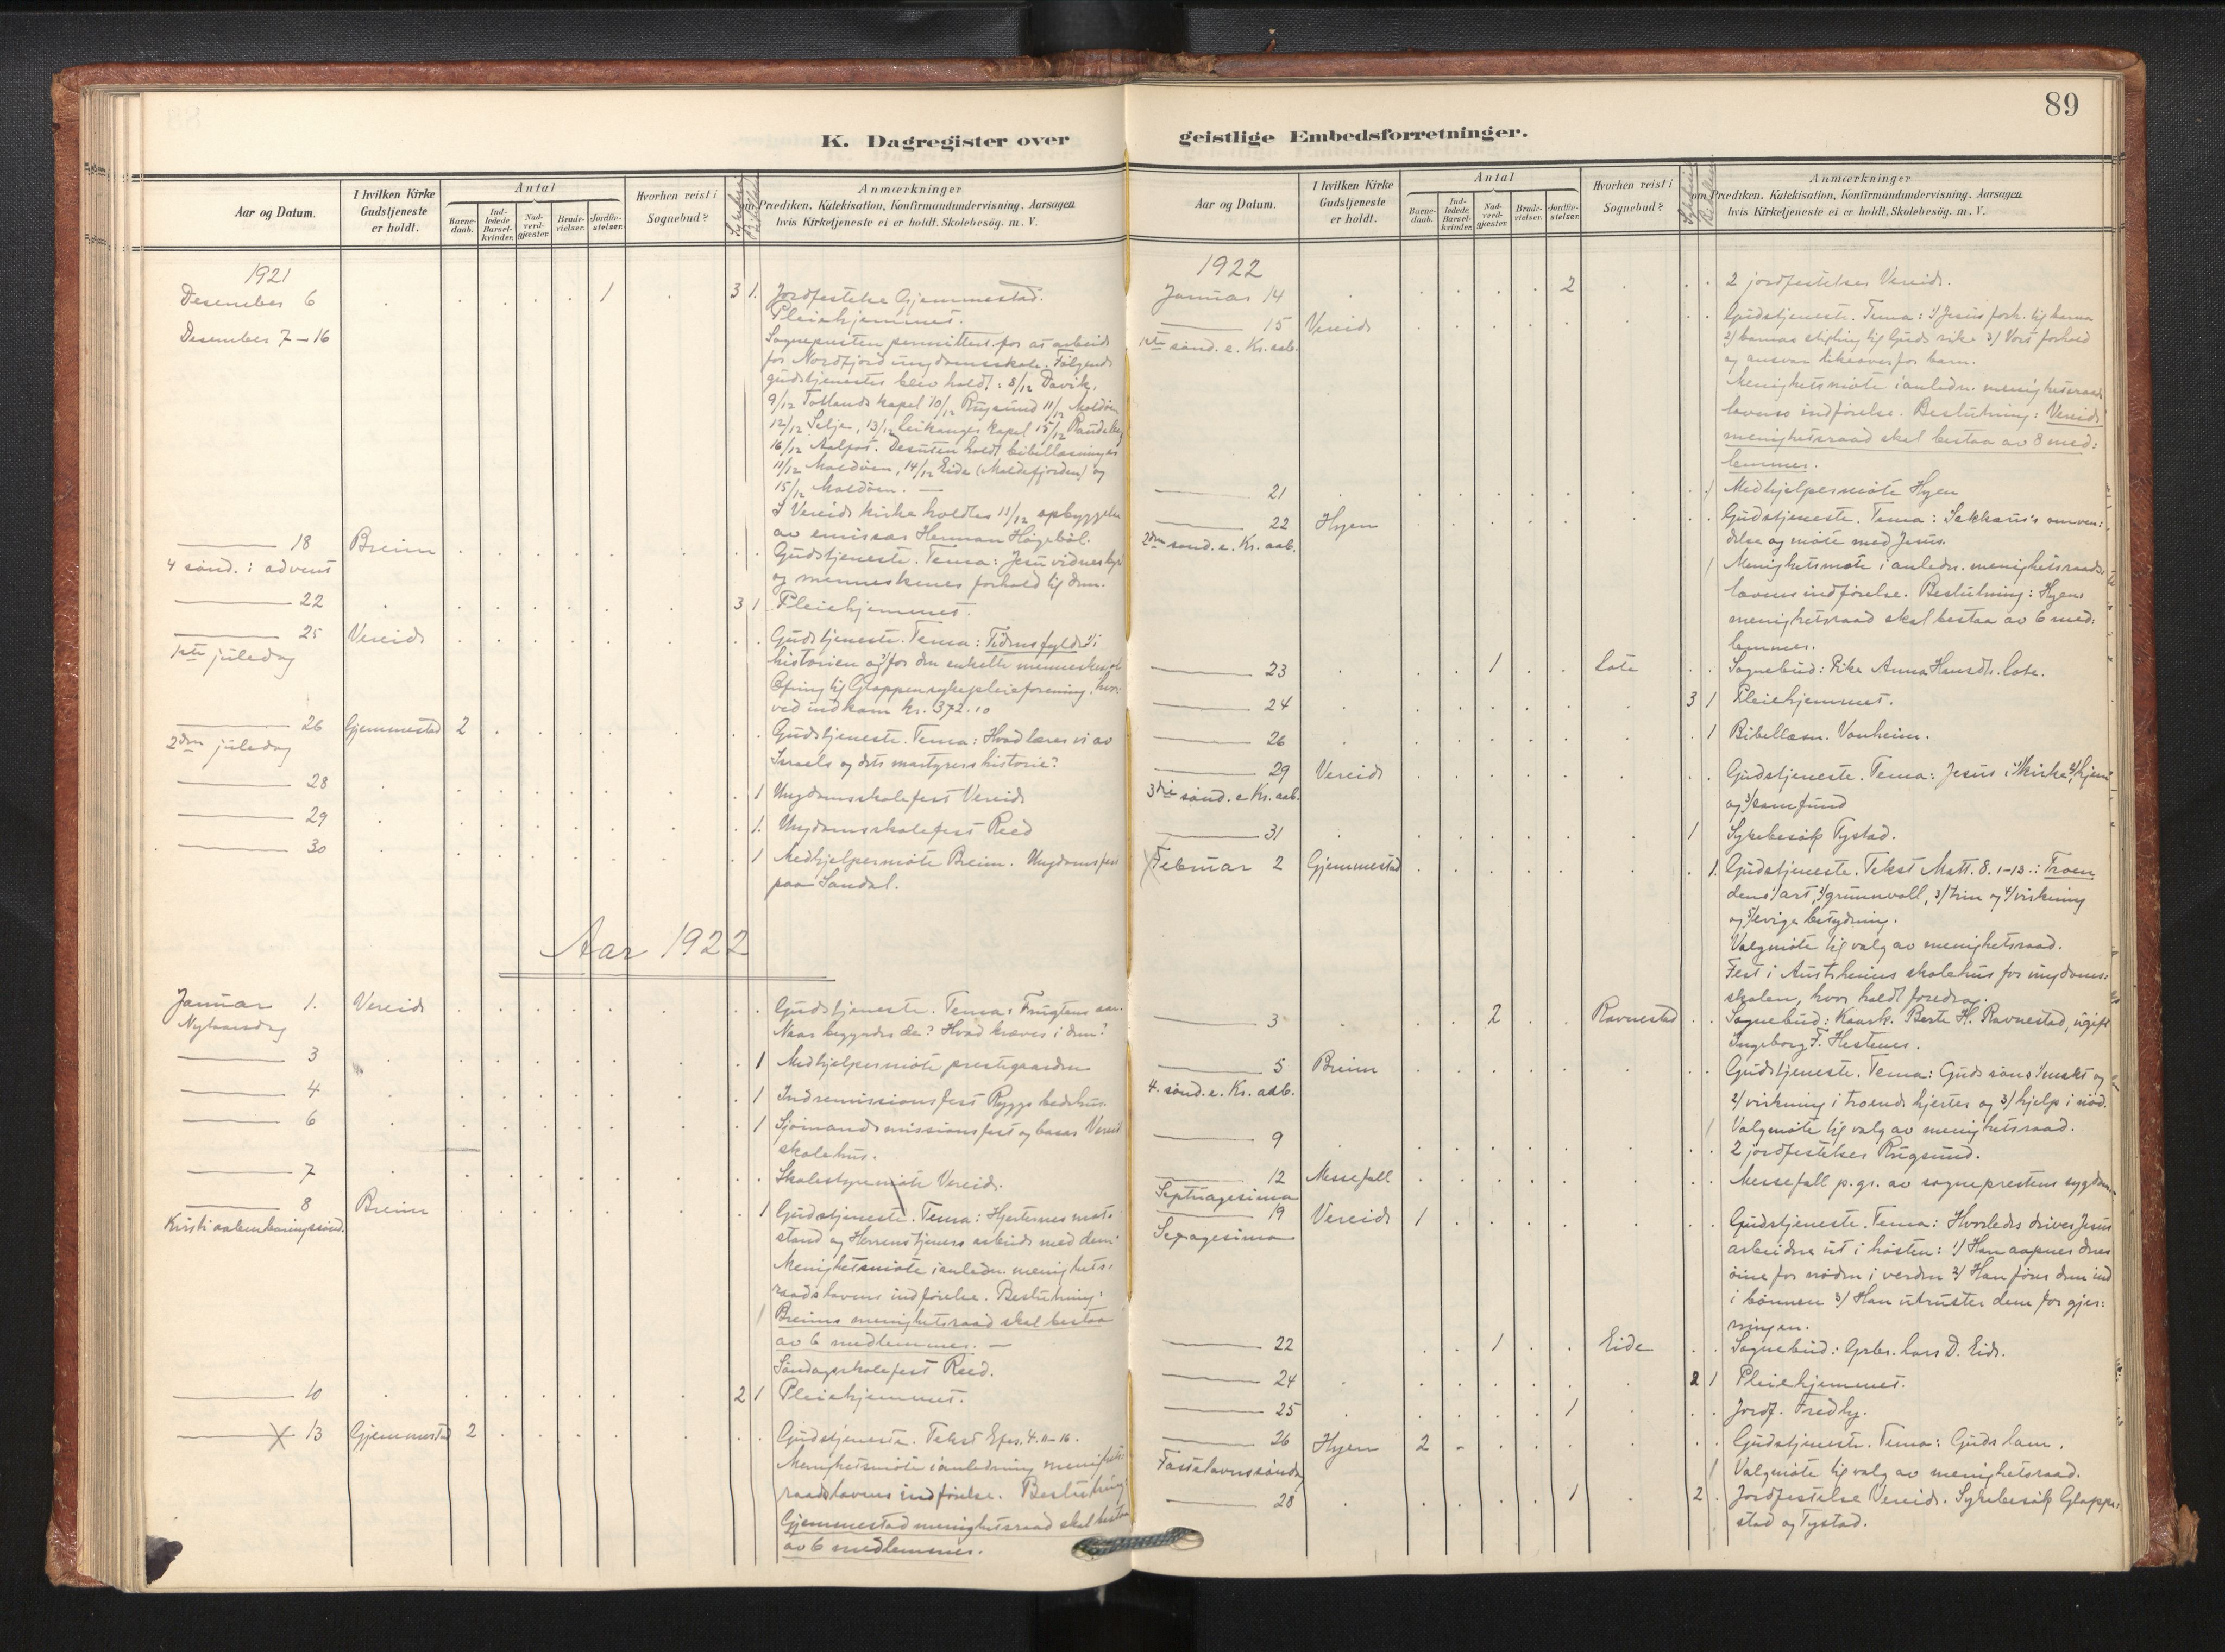 89
K. Dagregister over
Aar og Datum.
I hvilken Kirke
Gudstjeneste
er holdt.
Antal
Barne-
daab.
Ind-
ledede
Barsel-
kvinder.
Nad-
verd-
gjæster.
Brude-
vielser.
Jordfæ-
stelser.
Hvorhen reist i
Sognebud?
Anmærkninger
om Prædiken, Katekisation, Konfirmandundervisning. Aarsagen
hvis Kirketjeneste ei er holdt. Skolebesøg. m. V.
1921
Desember 6 . . . . . 1 . 3 1. Jordfestelse Gjemmestad.
Pleiehjemmet.
Desember 7–16
Sognepresten permittert for at arbeide
for Nordfjord ungdomsskole. Følgende
gudstjenester blev holdt: 8/12 Davik,
9/12 Totlands kapel 10/12 Rugsund 11/12 Maldøen
12/12 Selje, 13/12 Leikanger kapel 15/12
16/12 Aalfot. Desuten holdt bibellæsninger
11/12 Maldøen, 14/12 Eide (Maldefjorden) og
15/12 Maldøen. —
I Vereide kirke holdtes 11/12 opbyggelse
av emissær Herman Høgebøl.
18 Breim Gudstjeneste. Tema: Jesu vidnesbyrd
4 sønd. i advent
og menneskenes forhold til dem.
22 3 1 Pleiehjemmet.
25 Vereide Gudstjeneste. Tema: Tidens fylde 1/ i
1ste juledag
historien og 2/ for den enkelte menneskesjel
Ofring til Gloppen sykepleieforening, hvor-
ved indkom kr. 372.10
26 Gjemmestad 2 Gudstjeneste. Tema: Hvad lærer vi av
2den juledag
Israels og dets martyrers historie?
28 1 Ungdomsskolefest Vereide
29 1. Ungdomsskolefest Reed
30 1 Medhjelpermøte Breim. Ungdomsfest
paa Sandal.
Aar 1922
Januar 1. Vereide Gudstjeneste. Tema: Frugtens aar.
Nytaarsdag
Naar begynder de? Hvad kræves i dem?
3 1 Medhjelpermøte prestegaarden
4 1 Indremissionsfest Rygg bedehus.
6 1 Sjømandsmissionsfest og basar Vereide
skolehus.
7 Skolestyremøte Vereide.
8 Breim 1 Gudstjeneste. Tema: Hjerternes mot-
Kristi aabenbaringssønd.
stand og Herrens tjeners arbeide med dem.
Menighetsmøte i anledn. menighets-
raadslovens indførelse. Beslutning:
1 Breims menighetsraad skal bestaa
av 6 medlemmer. —
Søndagsskolefest Reed.
10 2 1 Pleiehjemmet.
X 13 Gjemmestad 2 Gudstjeneste. Tekst Efes. 4. 11–16.
Menighetsmøte i anledning menighets-
raadslovens indførelse. Beslutning:
Gjemmestad menighetsraad skal bestaa
av 6 medlemmer.
geistlige Embedsforretninger.
Aar og Datum.
I hvilken Kirke
Gudstjeneste
er holdt.
Antal
Barne-
daab.
Ind-
ledede
Barsel-
kvinder.
Nad-
verd-
gjæster.
Brude-
vielser.
Jordfæ-
stelser.
Hvorhen reist i
Sognebud?
Anmærkninger
om Prædiken. Katekisation, Konfirmandundervisning. Aarsagen
hvis Kirketjeneste ei er holdt. Skolebesøg. m. V.
1922
Januar 14 2 2 jordfestelser Vereide.
15 Vereide Gudstjeneste. Tema: 1/ Jesus forh. til barna
1ste sønd. e. Kr. aab.
2/ barnas stilling til Guds rike 3/ Vort forhold
og ansvar likeoverfor barn.
Menighetsmøte i anledn. menighetsraads
lovens indførelse. Beslutning: Vereide
menighetsraad skal bestaa av 8 med-
lemmer.
21 1 Medhjelpermøte Hyen
22 Hyen Gudstjeneste. Tema: Sakkæus's omven-
2den sønd. e. Kr. aab.
delse og møte med Jesus.
1 Menighetsmøte i anledn. menighetsraads
lovens indførelse. Beslutning: Hyens
menighetsraad skal bestaa av 6 med-
lemmer.
23 1 Lote Sognebud: Pike Anna Hansdt. Lote.
24 3 1 Pleiehjemmet.
26 1 Bibellæsn. Vonheim.
29 Vereide Gudstjeneste. Tema: Jesus i 1/ kirke, 2/ hjem
3die sønd. e Kr. aab.
og 3/ samfund
31 1 Sykebesøk Tystad.
X Februar 2 Gjemmestad 1. Gudstjeneste. Tekst Matt. 8. 1–13.: Troen
dens 1/ art, 2/ grunnvoll, 3/ trin og 4/ virkning
og 5/ evige betydning.
Valgmøte til valg av menighetsraad.
Fest i Austrheims skolehus for ungdoms-
skolen, hvor holdt foredrag.
3 2 Ravnestad Sognebud: Kaark. Berte H. Ravnestad, ugift
Ingeborg F. Hestenes.
5 Breim Gudstjeneste. Tema: Guds søns 1/ makt og
4. sønd. e. Kr. aab.
2/ virkning i troendes hjerter og 3/ hjelp i nød.
1 Valgmøte til valg av menighetsraad.
9 2 jordfestelser Rugsund.
12 Messefall Messefall p. gr. av sogneprestens sygdom.
Septuagesima
19 Vereide 1 Gudstjeneste. Tema: Hvorledes driver Jesus
Sexagesima
arbeidere ut i høsten: 1/ Han aapner deres
øine for nøden i verden 2/ Han fører dem ind
i bønnen 3/ Han utruster dem for gjer-
ningen.
22 1 Eide Sognebud: Gbr. Lars D. Eide.
24 2 1 Pleiehjemmet.
25 1 Jordf. Fredly.
26 Hyen 2 Gudstjeneste. Tema: Guds lam.
Fastelavnssøndag
1 Valgmøte til valg av menighetsraad.
28 1 2 Jordfestelse Vereide. Sykebesøk Gloppe-
stad og Tystad.